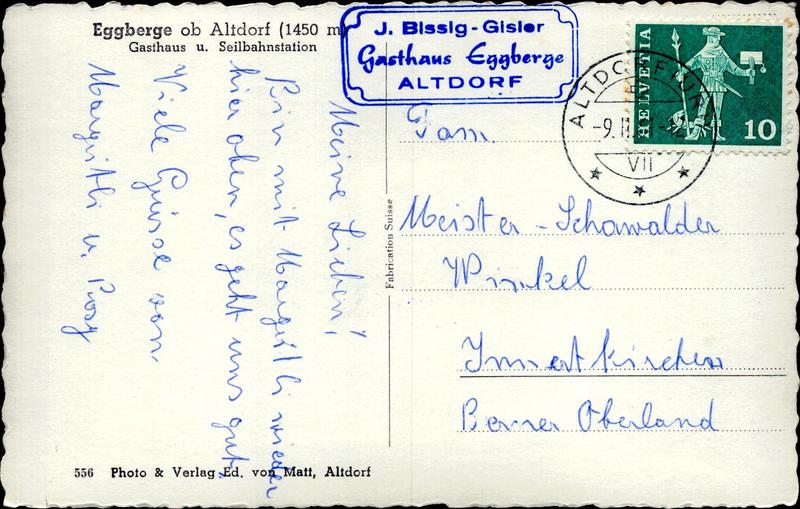 Eggberge ob Altdorf (1450 m)
Gasthaus u. Seilbahnstation
Meine Lieben!
Bin mit Margritli wieder
hier oben, es geht uns gut.
Viele Grüsse von
Margritli u. Rosy
556 Photo & Verlag Ed. von Matt, Altdorf
Fabrication Suisse
J. Bissig-Gisler
Gasthaus Eggberge
ALTDORF
HELVETIA
10
ALTDORF (URI)
VII
Fam.
Meister-Schawalder
Winkel
Innertkirchen
Berner Oberland